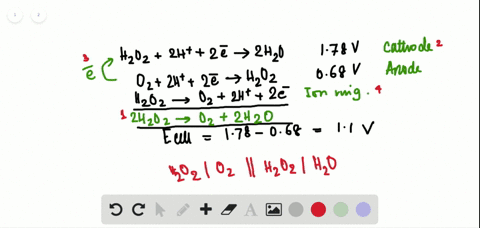 3 H₂O₂ + 2H⁺ + 2e̅ → 2H₂O 1.78 V Cathode 2
e̅ O₂ + 2H⁺ + 2e̅ → H₂O₂ 0.68 V Anode
H₂O₂ → O₂ + 2H⁺ + 2e⁻ Ion mig. 4
1 2H₂O₂ → O₂ + 2H₂O
Ecell = 1.78 - 0.68 = 1.1 V
H₂O₂ | O₂ || H₂O₂ | H₂O
A